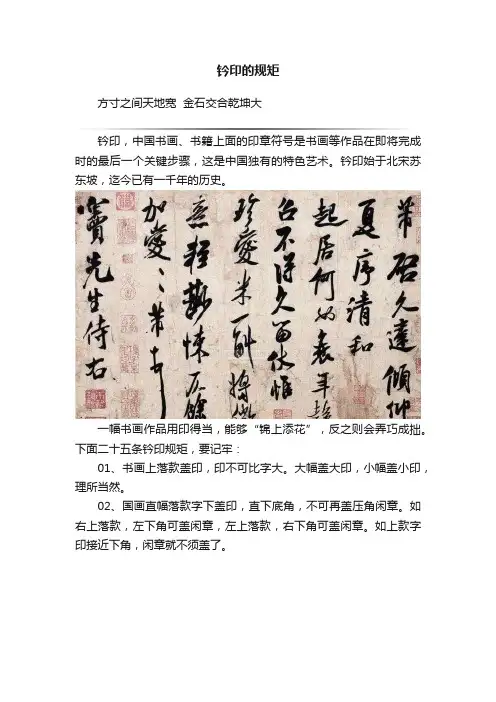 钤印的规矩
方寸之间天地宽 金石交合乾坤大
钤印，中国书画、书籍上面的印章符号是书画等作品在即将完成
时的最后一个关键步骤，这是中国独有的特色艺术。钤印始于北宋苏
东坡，迄今已有一千年的历史。
芾啓久違傾仰
夏序清和
起居何如衰年趨
召不得久留伏惟
珍愛米一斛將微
意輕鮮悚仄餘
加愛〻芾頓首
竇先生侍右
一幅书画作品用印得当，能够“锦上添花”，反之则会弄巧成拙。
下面二十五条钤印规矩，要记牢：
01、书画上落款盖印，印不可比字大。大幅盖大印，小幅盖小印，
理所当然。
02、国画直幅落款字下盖印，直下底角，不可再盖压角闲章。如
右上落款，左下角可盖闲章，左上落款，右下角可盖闲章。如上款字
印接近下角，闲章就不须盖了。